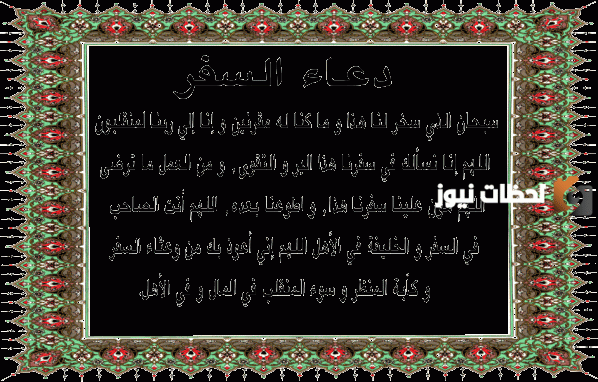 دعاء السفر
سبحان الذي سخر لنا هذا و ما كنا له مقرنين و إنا إلي ربنا لمنقلبون
اللهم إنا نسألك في سفرنا هذا البر و التقوى, و من العمل ما ترضى
اللهم هون علينا سفرنا هذا, و اطوعنا بعده, اللهم أنت الصاحب
لحظات نيوز
في السفر و الخليفة في الأهل اللهم إني أعوذ بك من وعثاء السفر
و كآبة المنظر و سوء المنقلب في المال و في الأهل